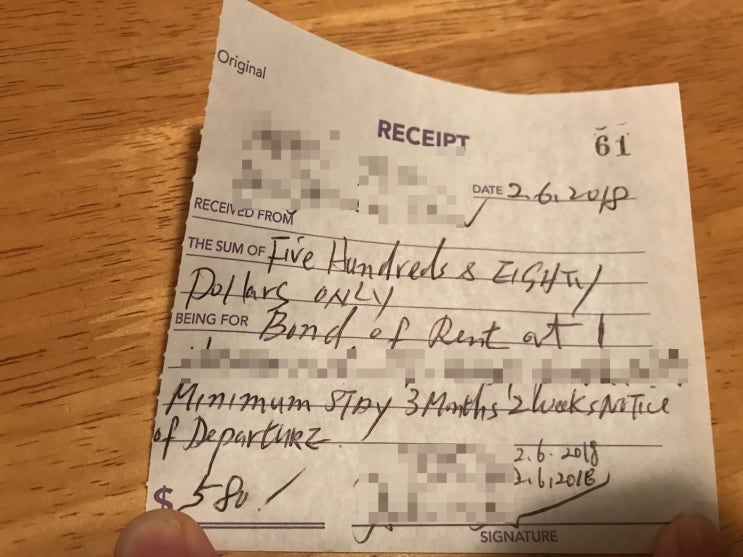 Original
RECEIPT
61
DATE 2.6.2018
RECEIVED FROM
THE SUM OF Five Hundreds & EIGHTY
Dollars ONLY
BEING FOR Bond of Rent at 1
Minimum STAY 3 Months 2 weeks NOTICE
of DEPARTURE
2.6.2018
2.6.2018
$ 580/
SIGNATURE